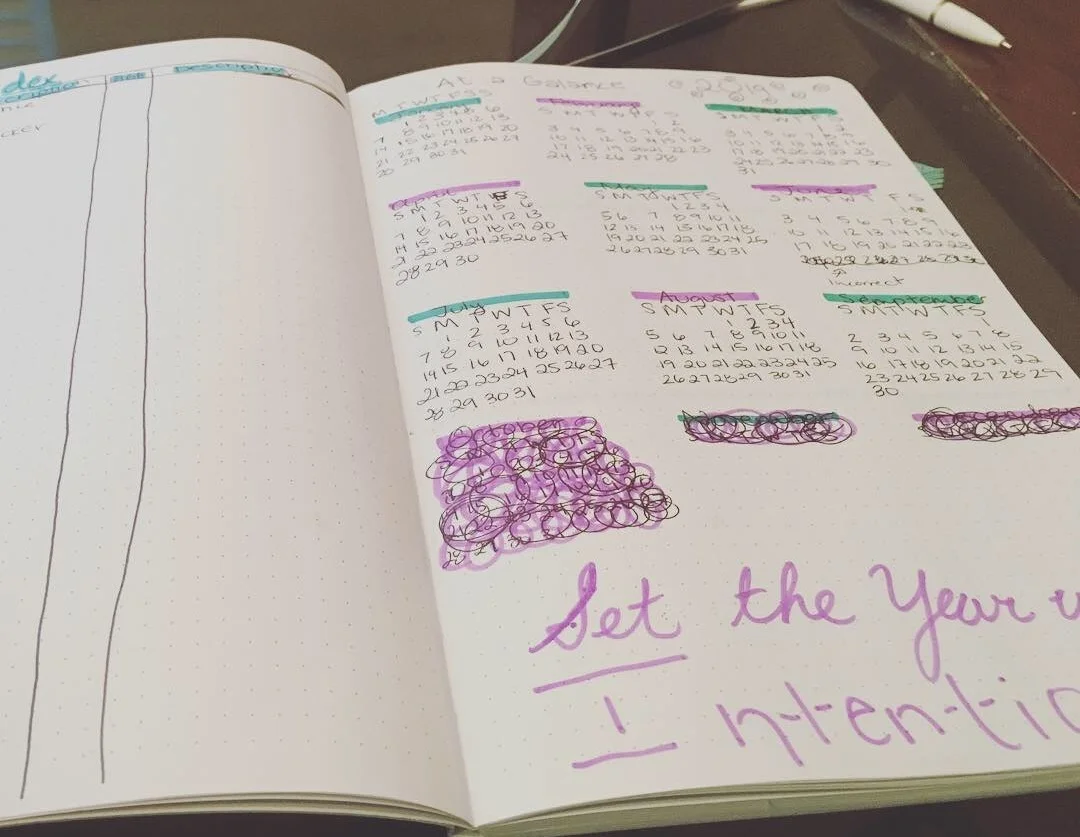 dex
Page
Description
At a Galance 2019
January
M T W T F S S
1 2 3 4 5 6
7 8 9 10 11 12 13
14 15 16 17 18 19 20
21 22 23 24 25 26 27
29 30 31
February
S M T W T F S
3 4 5 6 7 8 9
10 11 12 13 14 15 16
17 18 19 20 21 22 23
24 25 26 27 28
March
S M T W T F S
1 2
3 4 5 6 7 8 9
10 11 12 13 14 15 16
17 18 19 20 21 22 23
24 25 26 27 28 29 30
31
April
S M T W T F S
1 2 3 4 5 6
7 8 9 10 11 12 13
14 15 16 17 18 19 20
21 22 23 24 25 26 27
28 29 30
May
S M T W T F S
1 2 3 4
5 6 7 8 9 10 11
12 13 14 15 16 17 18
19 20 21 22 23 24 25
26 27 28 29 30 31
June
S M T W T F S
3 4 5 6 7 8 9
10 11 12 13 14 15 16
17 18 19 20 21 22 23
incorrect
July
S M T W T F S
1 2 3 4 5 6
7 8 9 10 11 12 13
14 15 16 17 18 19 20
21 22 23 24 25 26 27
28 29 30 31
August
S M T W T F S
1 2 3 4
5 6 7 8 9 10 11
12 13 14 15 16 17 18
19 20 21 22 23 24 25
26 27 28 29 30 31
Semptember
S M T W T F S
1
2 3 4 5 6 7 8
9 10 11 12 13 14 15
16 17 18 19 20 21 22
23 24 25 26 27 28 29
30
October
Set the Year
Intentio